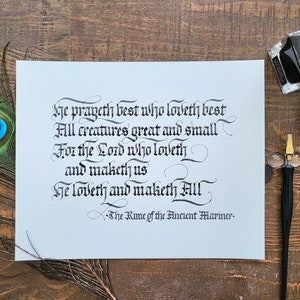 He prayeth best who loveth best
All creatures great and small
For the Lord who loveth
and maketh us
He loveth and maketh All
·The Rime of the Ancient Mariner·